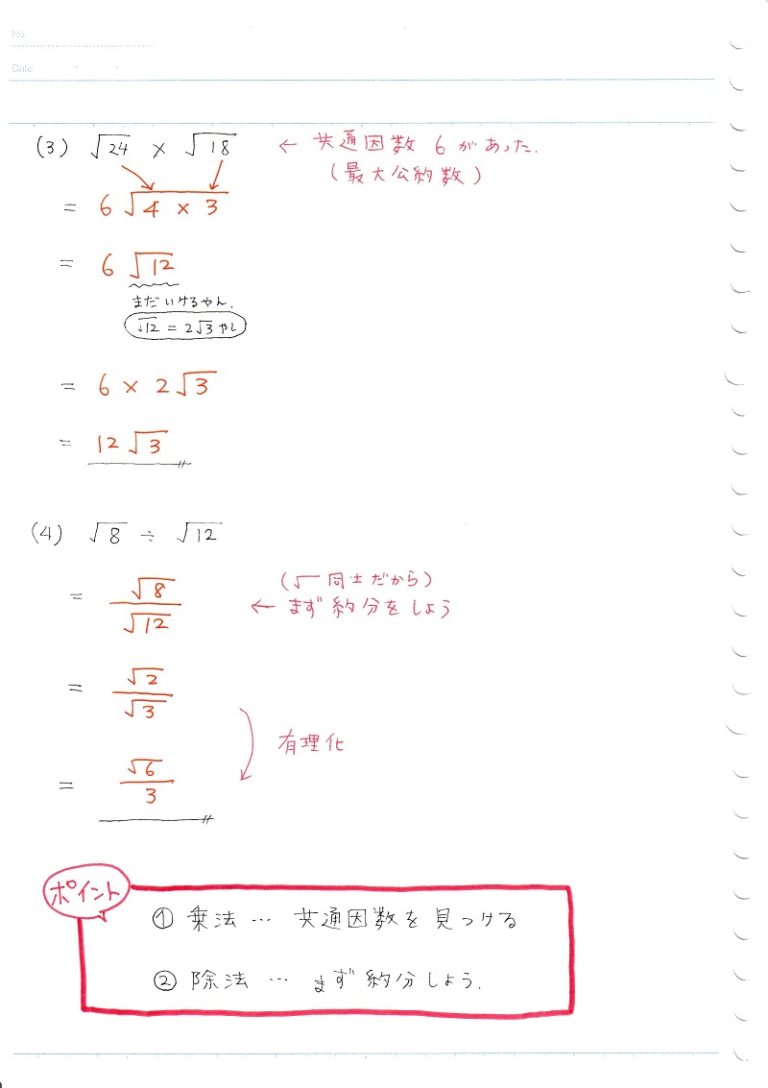 No.
Date
(3) √24 × √18 ← 共通因数 6 があった.
(最大公約数)
= 6√4 × 3
= 6√12
まだいけるやん.
√12 = 2√3 やし
= 6 × 2√3
= 12√3
(4) √8 ÷ √12
(√ 同士だから)
= √8/√12 ← まず約分をしよう
= √2/√3
有理化
= √6/3
ポイント
① 乗法 … 共通因数を見つける
② 除法 … まず約分しよう.